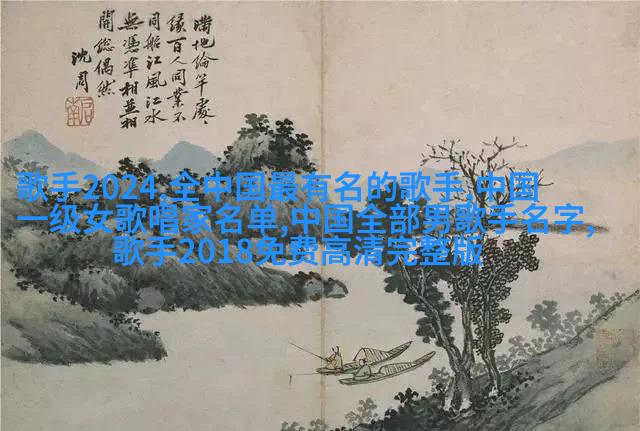 滿地綸竿處〻
緣百人同業不
同船江風江水
無憑準相並相
開總偶然
沈周
歌手2024,全中国最有名的歌手,中国
一级女歌唱家名单,中国全部男歌手名字,
歌手2018免费高清完整版